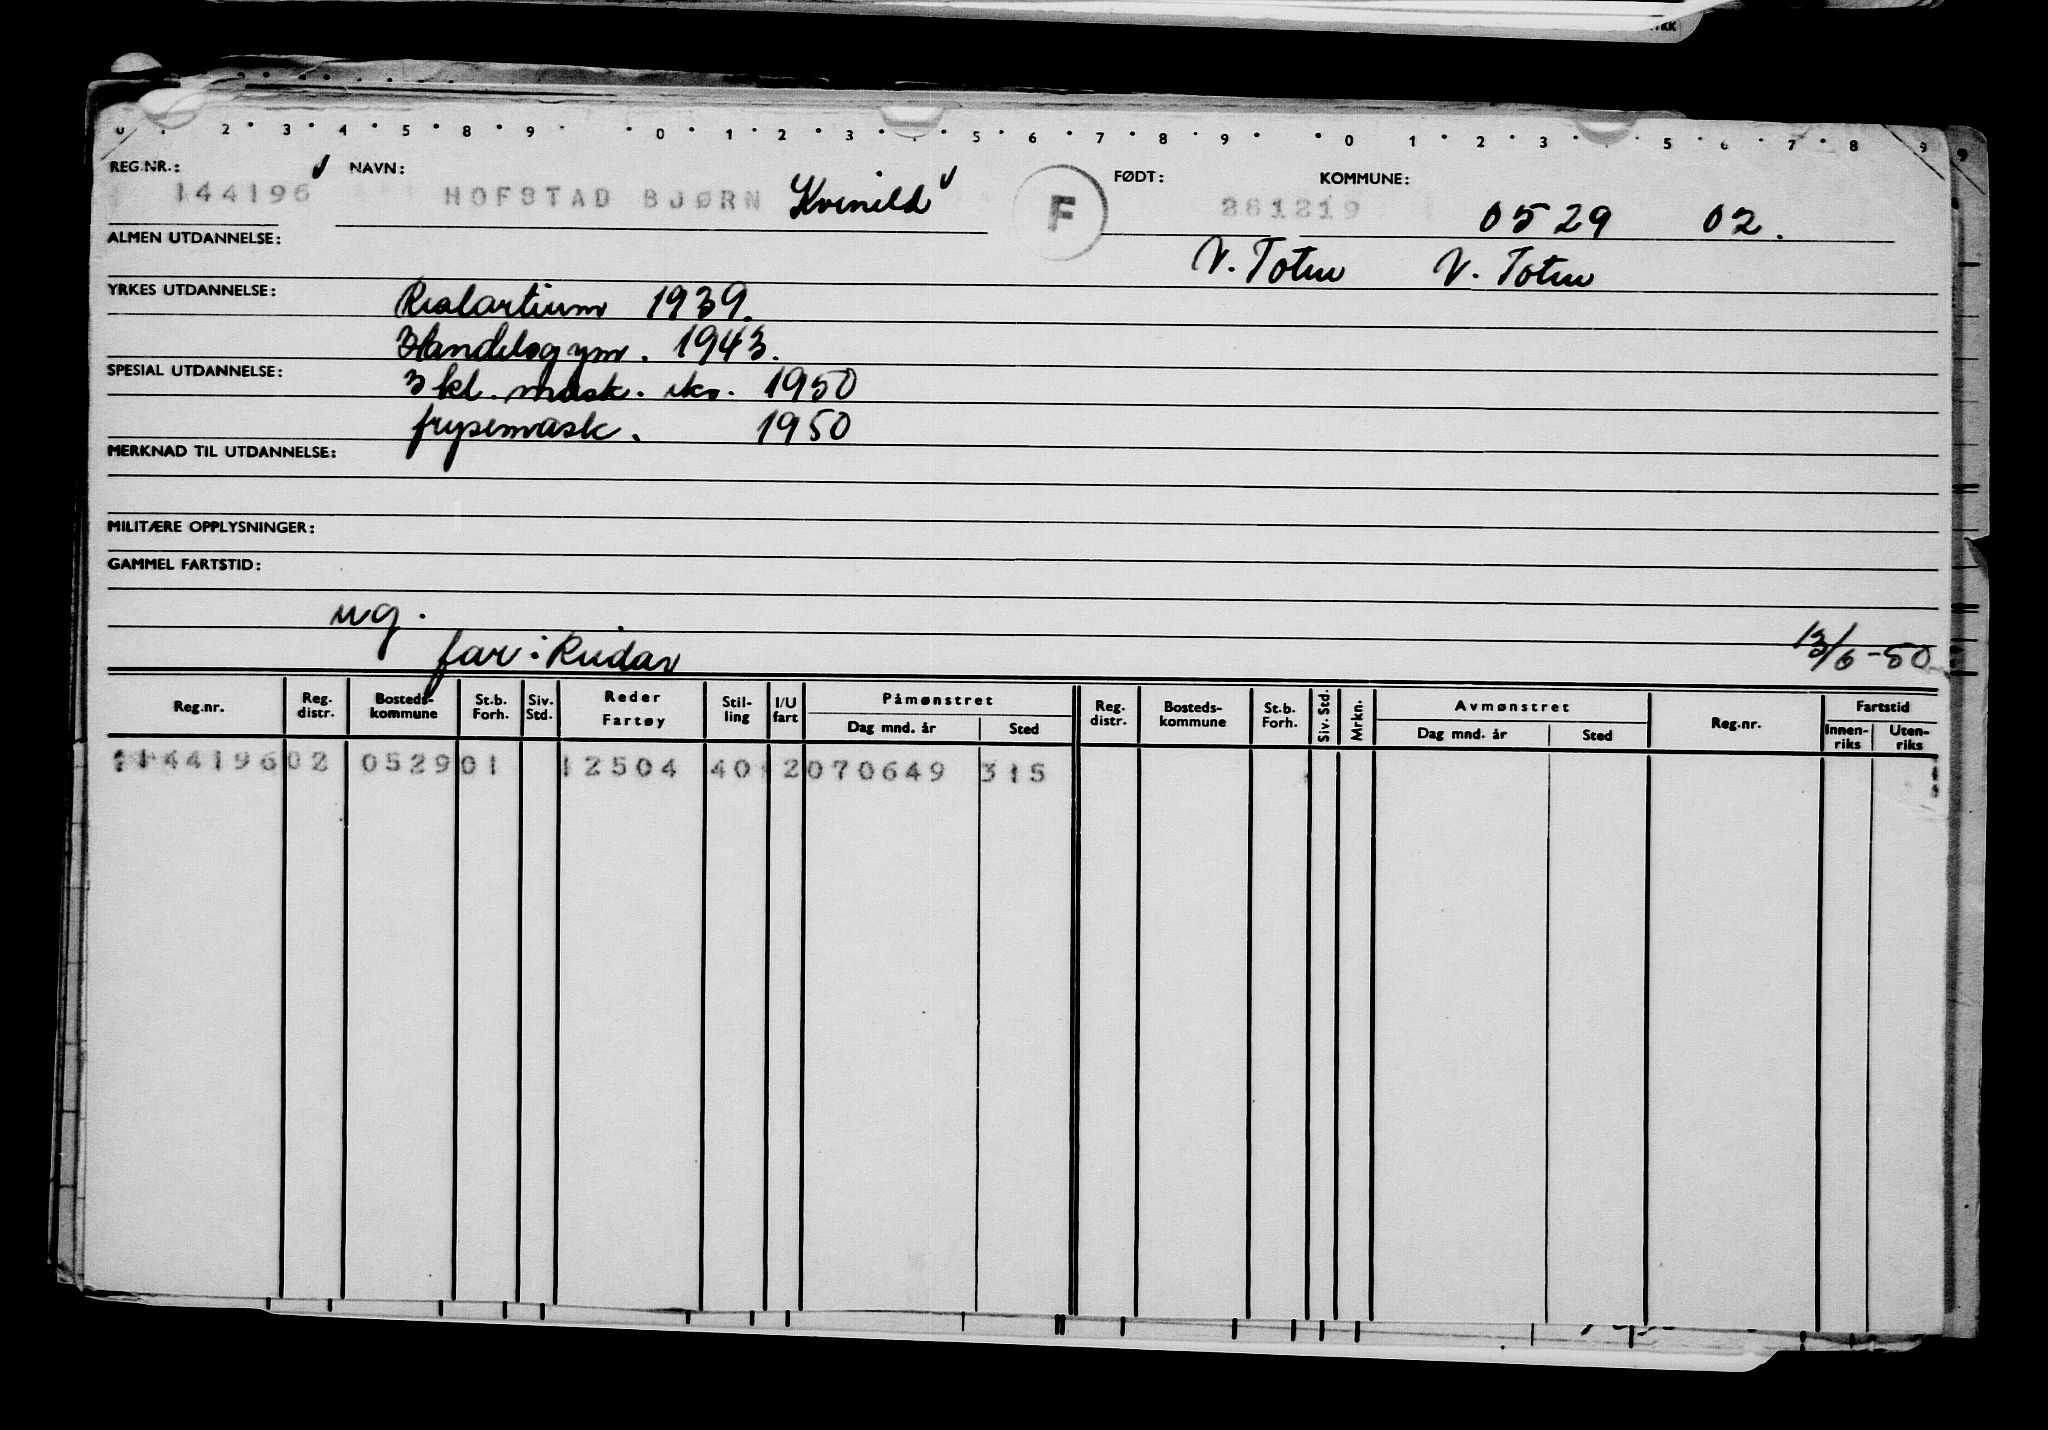 0 2 3 4 5 8 9 0 1 2 3 5 6 7 8 9 0 1 2 3 5 6 7 8 9
REG.NR.: NAVN: FØDT: KOMMUNE:
144196 HOFSTAD BJØRN Kvinild F 281219 0529 02.
ALMEN UTDANNELSE: V. Toten V. Toten
YRKES UTDANNELSE: Realartium 1939.
Handelsgym. 1943.
SPESIAL UTDANNELSE: 3 kl. mask. eks. 1950
frysemask. 1950
MERKNAD TIL UTDANNELSE:
MILITÆRE OPPLYSNINGER:
GAMMEL FARTSTID:
ug.
far: Reidar 13/6-50
Reg.nr. Reg. distr. Bosteds-kommune St.b. Forh. Siv. Std. Reder Fartøy Stil-ling I/U fart Påmønstret Dag mnd. år Sted Reg. distr. Bosteds-kommune St.b. Forh. Siv. Std. Mrkn. Avmønstret Dag mnd. år Sted Reg.nr. Fartstid Innen-riks Uten-riks
144196 02 0529 01 12504 40 2 070649 315